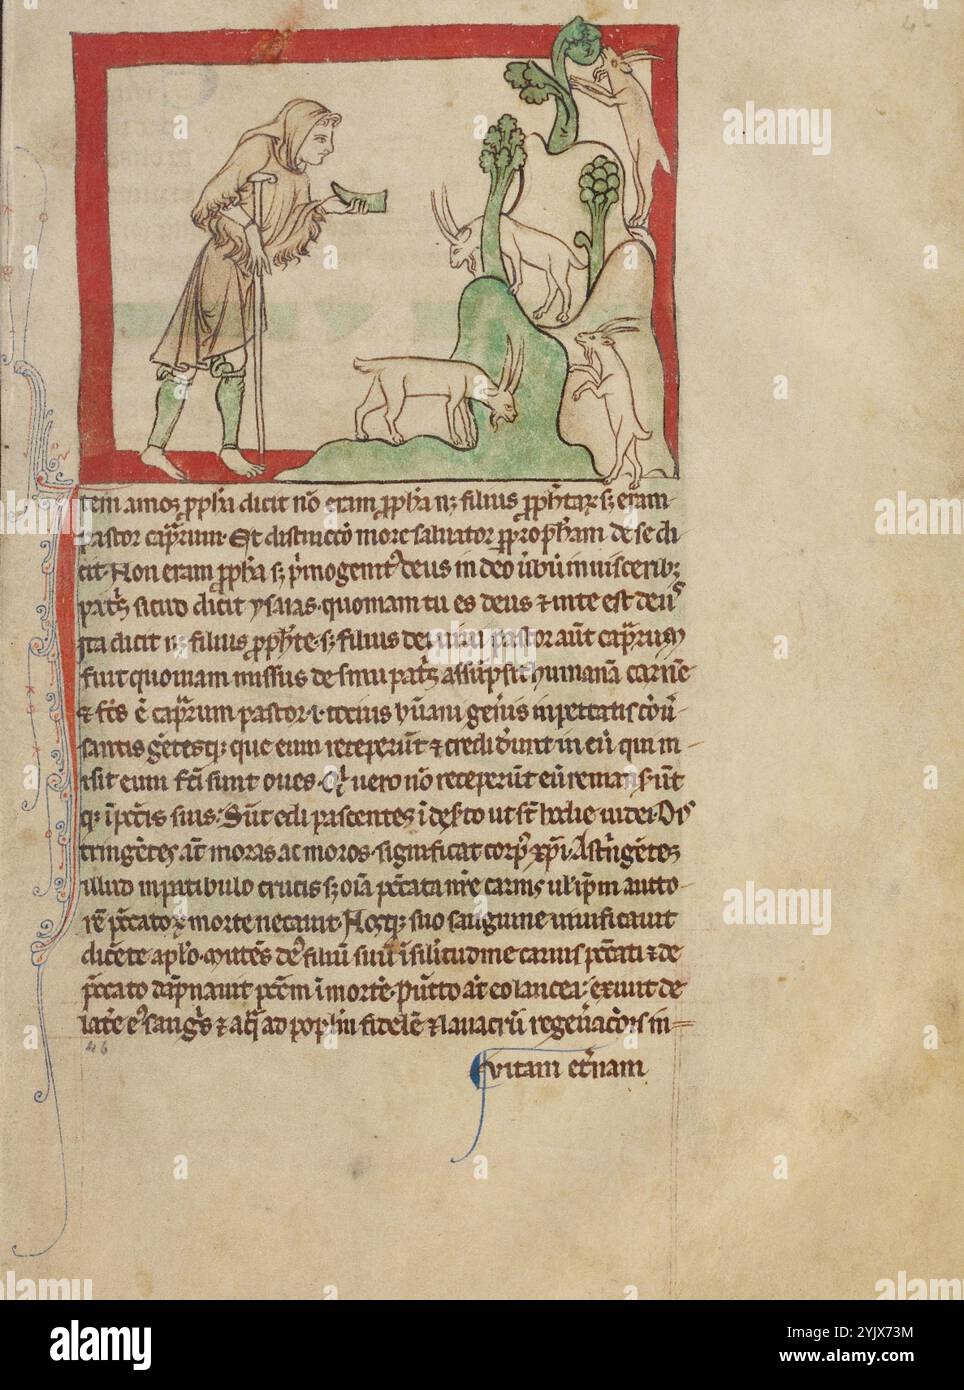 tem amos ꝓph̃a dicit nõ eram ꝓph̃a nꝫ filius ꝓph̃tæ sꝫ eram
pastor cap̃rum. Et distincto more saluator ꝑ ꝓpham de se di
cit. Non eram ꝓph̃a sꝫ p̃mogenit᾽ deus in deo
pat̃s sicud dicit ysaias. quoniam tu es deus ⁊ in te est deus
Ita dicit nꝫ filius ꝓph̃te. sꝫ filius dei uiui pastor aũt cap̃rum
fuit quoniam missus de sinu pat̃s assũpsit humanã carnẽ
⁊ fc̃s ẽ cap̃rum pastor .i. tocius hũani gen̾is in peccatis
gẽtesqꝫ que eum receperũt ⁊ crediderunt in eũ qui m
isit eum fc̃i sunt oues. Q̃ uero nõ receperũt eũ remanserũt
in pc̃tis suis. Sũt edi pascentes ĩ ut hodie uidei. Dis
tringẽtes aũt moras ac moros. significat corp᾽ xp̃i. Astringẽtes
illud in patibulo crucis sꝫ oĩa pc̃cata nr̃e carnis ul ip̃m aucto
rẽ pc̃catoꝝ morte necauit. Nosqꝫ suo sanguine uiuificauit
dicẽte ap̃lo. Mittẽs de᾽ filiũ suũ ĩ similitudinẽ carnis pc̃cati ⁊ de
pc̃cato dãpnauit pc̃cm ĩ morte. Pũcto at̃ eo lancea. exiuit de
latẽ e᾽ sang̃s ⁊ aq̃ ad pop̃lm fidelẽ ⁊ lauacrũ regen̾ac̃ois in=
46
uitam et̾nam
alamy
Image ID: 2YJX73M
www.alamy.com